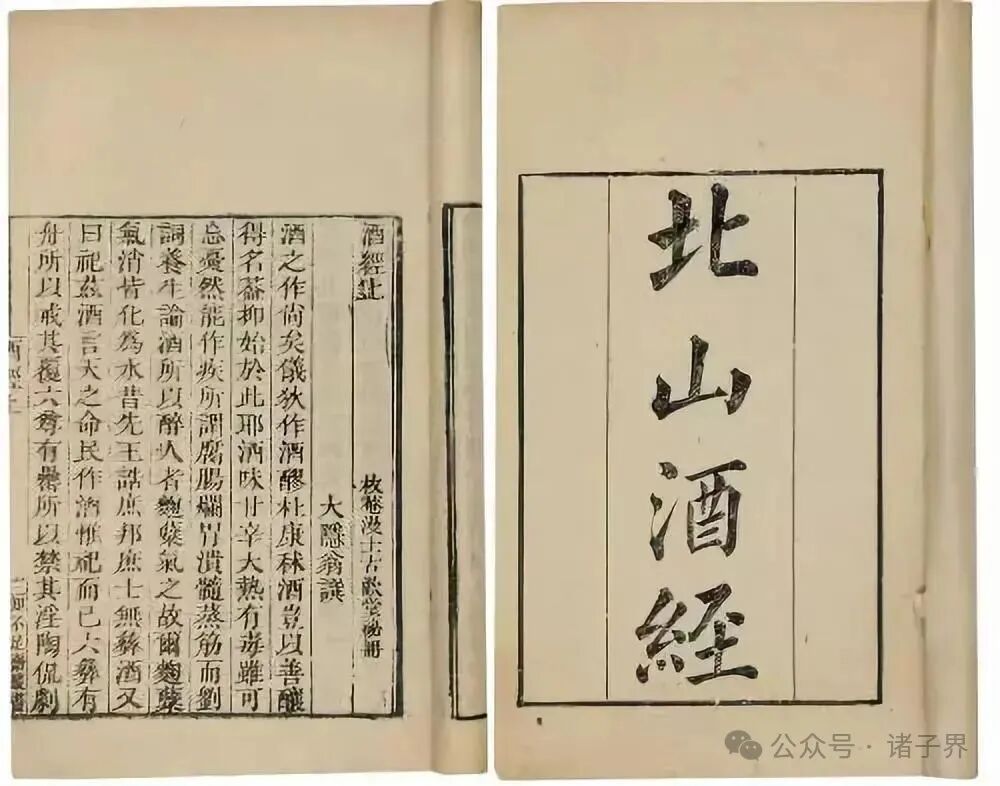 北山酒經
酒經上
枚菴漫士古歡堂秘冊
大隱翁譔
酒之作尚矣儀狄作酒醪杜康秫酒豈以善釀
得名蓋抑始於此耶酒味甘辛大熱有毒雖可
忘憂然能作疾所謂腐腸爛胃潰髓蒸筋而劉
詞養生論酒所以醉人者麴糵氣之故爾麴糵
氣消皆化爲水昔先王誥庶邦庶士無彝酒又
曰祀茲酒言天之命民作酒惟祀而已六彝有
舟所以戒其覆六尊有罍所以禁其淫陶侃劇
公众号·诸子界